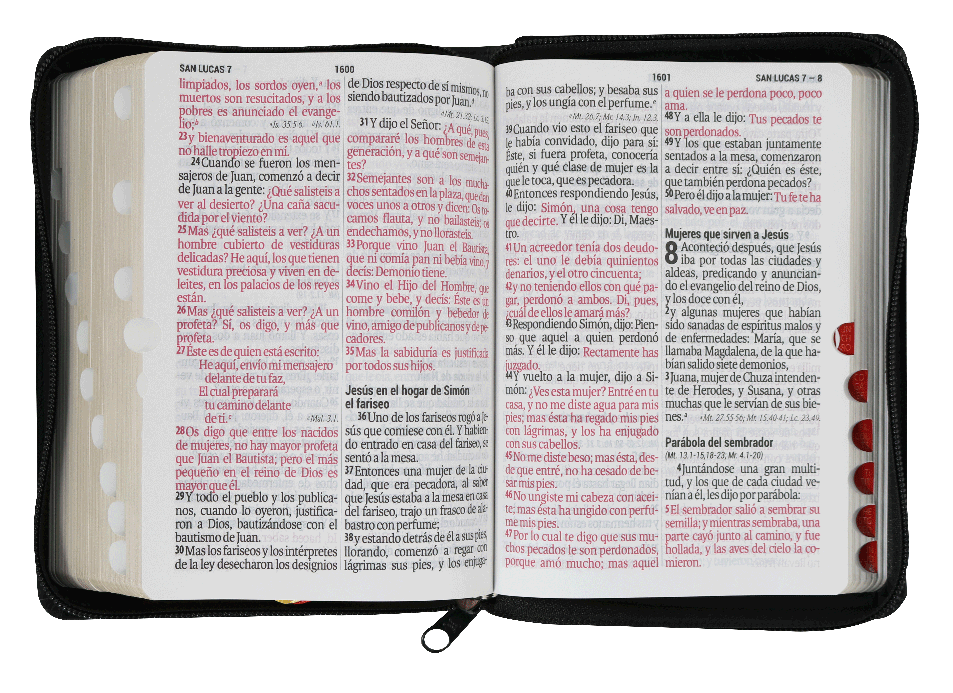 SAN LUCAS 7
1600
limpiados, los sordos oyen,ᵃ los
muertos son resucitados, y a los
pobres es anunciado el evange-
lio;ᵇ
ᵃIs. 35.5-6. ᵇIs. 61.1.
23y bienaventurado es aquel que
no halle tropiezo en mí.
24Cuando se fueron los men-
sajeros de Juan, comenzó a decir
de Juan a la gente: ¿Qué salisteis a
ver al desierto? ¿Una caña sacu-
dida por el viento?
25Mas ¿qué salisteis a ver? ¿A un
hombre cubierto de vestiduras
delicadas? He aquí, los que tienen
vestidura preciosa y viven en de-
leites, en los palacios de los reyes
están.
26Mas ¿qué salisteis a ver? ¿A un
profeta? Sí, os digo, y más que
profeta.
27Éste es de quien está escrito:
He aquí, envío mi mensajero
delante de tu faz,
El cual preparará
tu camino delante
de ti.ᶜ
ᶜMal. 3.1.
28Os digo que entre los nacidos
de mujeres, no hay mayor profeta
que Juan el Bautista; pero el más
pequeño en el reino de Dios es
mayor que él.
29Y todo el pueblo y los publica-
nos, cuando lo oyeron, justifica-
ron a Dios, bautizándose con el
bautismo de Juan.
30Mas los fariseos y los intérpretes
de la ley desecharon los designios
de Dios respecto de sí mismos, no
siendo bautizados por Juan.ᵈ
ᵈMt. 21.32; Lc. 3.12.
31Y dijo el Señor: ¿A qué, pues,
compararé los hombres de esta
generación, y a qué son semejan-
tes?
32Semejantes son a los mucha-
chos sentados en la plaza, que dan
voces unos a otros y dicen: Os to-
camos flauta, y no bailasteis; os
endechamos, y no llorasteis.
33Porque vino Juan el Bautista,
que ni comía pan ni bebía vino, y
decís: Demonio tiene.
34Vino el Hijo del Hombre, que
come y bebe, y decís: Éste es un
hombre comilón y bebedor de
vino, amigo de publicanos y de pe-
cadores.
35Mas la sabiduría es justificada
por todos sus hijos.
Jesús en el hogar de Simón
el fariseo
36Uno de los fariseos rogó a Je-
sús que comiese con él. Y habien-
do entrado en casa del fariseo, se
sentó a la mesa.
37Entonces una mujer de la ciu-
dad, que era pecadora, al saber
que Jesús estaba a la mesa en casa
del fariseo, trajo un frasco de ala-
bastro con perfume;
38y estando detrás de él a sus pies,
llorando, comenzó a regar con
lágrimas sus pies, y los enjuga-
1601
SAN LUCAS 7 – 8
ba con sus cabellos; y besaba sus
pies, y los ungía con el perfume.ᵉ
ᵉMt. 26.7; Mr. 14.3; Jn. 12.3.
39Cuando vio esto el fariseo que
le había convidado, dijo para sí:
Éste, si fuera profeta, conocería
quién y qué clase de mujer es la
que le toca, que es pecadora.
40Entonces respondiendo Jesús,
le dijo: Simón, una cosa tengo
que decirte. Y él le dijo: Di, Maes-
tro.
41Un acreedor tenía dos deudo-
res: el uno le debía quinientos
denarios, y el otro cincuenta;
42y no teniendo ellos con qué pa-
gar, perdonó a ambos. Di, pues,
¿cuál de ellos le amará más?
43Respondiendo Simón, dijo: Pien-
so que aquel a quien perdonó
más. Y él le dijo: Rectamente has
juzgado.
44Y vuelto a la mujer, dijo a Si-
món: ¿Ves esta mujer? Entré en tu
casa, y no me diste agua para mis
pies; mas ésta ha regado mis pies
con lágrimas, y los ha enjugado
con sus cabellos.
45No me diste beso; mas ésta, des-
de que entré, no ha cesado de be-
sar mis pies.
46No ungiste mi cabeza con acei-
te; mas ésta ha ungido con perfu-
me mis pies.
47Por lo cual te digo que sus mu-
chos pecados le son perdonados,
porque amó mucho; mas aquel
a quien se le perdona poco, poco
ama.
48Y a ella le dijo: Tus pecados te
son perdonados.
49Y los que estaban juntamente
sentados a la mesa, comenzaron
a decir entre sí: ¿Quién es éste,
que también perdona pecados?
50Pero él dijo a la mujer: Tu fe te ha
salvado, ve en paz.
Mujeres que sirven a Jesús
8 Aconteció después, que Jesús
iba por todas las ciudades y
aldeas, predicando y anuncian-
do el evangelio del reino de Dios,
y los doce con él,
2y algunas mujeres que habían
sido sanadas de espíritus malos y
de enfermedades: María, que se
llamaba Magdalena, de la que ha-
bían salido siete demonios,
3Juana, mujer de Chuza intenden-
te de Herodes, y Susana, y otras
muchas que le servían de sus bie-
nes.ᵃ
ᵃMt. 27.55-56; Mr. 15.40-41; Lc. 23.49.
Parábola del sembrador
(Mt. 13.1-15,18-23; Mr. 4.1-20)
4Juntándose una gran multi-
tud, y los que de cada ciudad ve-
nían a él, les dijo por parábola:
5El sembrador salió a sembrar su
semilla; y mientras sembraba, una
parte cayó junto al camino, y fue
hollada, y las aves del cielo la co-
mieron.